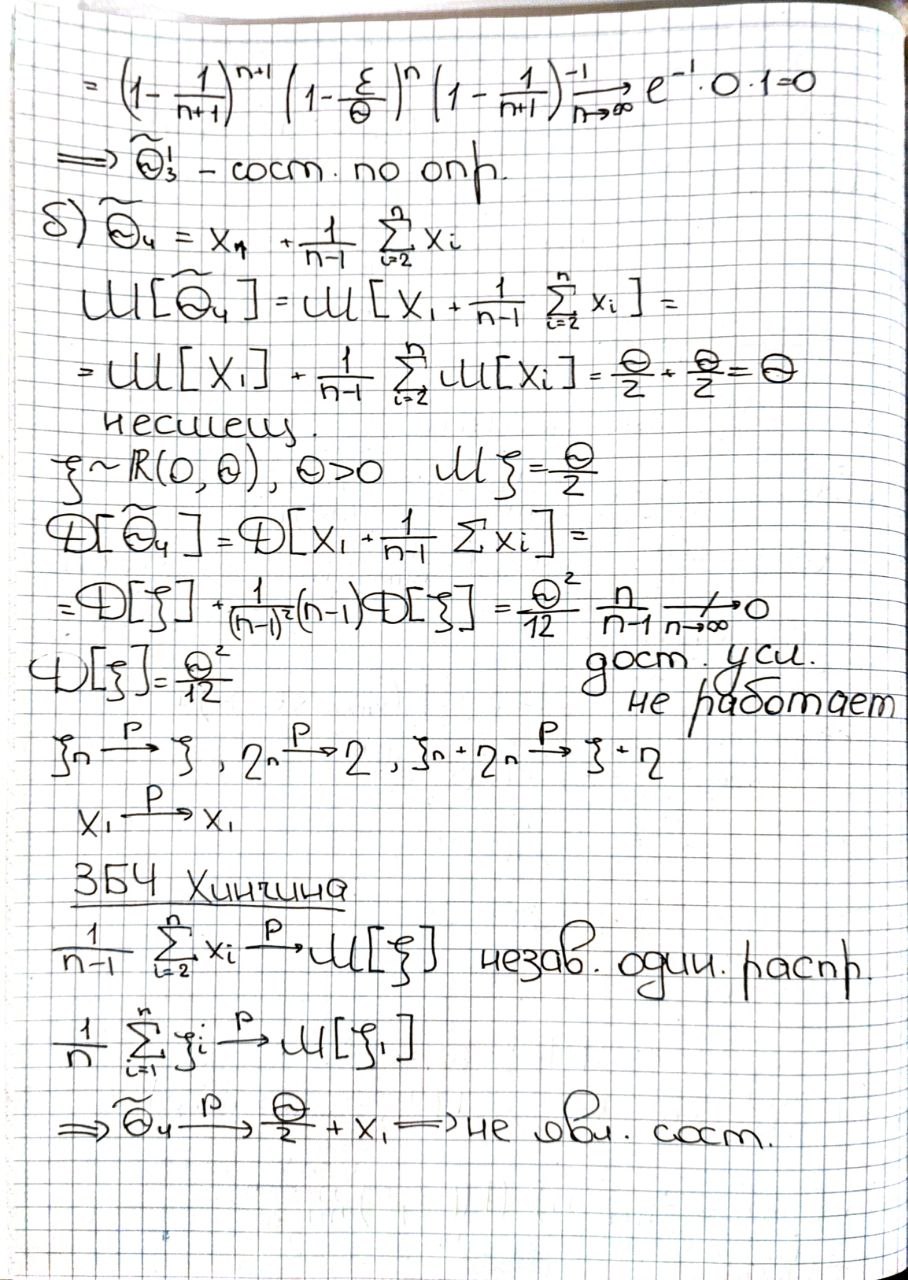 = (1 - 1/(n+1))^(n+1) (1 - ε/Θ)^n (1 - 1/(n+1))^(-1) →_(n→∞) e^(-1) · 0 · 1 = 0
⟹ Θ̃₃' - сост. по опр.
б) Θ̃₄ = x₁ + 1/(n-1) Σ_(i=2)^n xᵢ
M[Θ̃₄] = M[x₁ + 1/(n-1) Σ_(i=2)^n xᵢ] =
= M[x₁] + 1/(n-1) Σ_(i=2)^n M[xᵢ] = Θ/2 + Θ/2 = Θ
несмещ.
ξ ~ R(0, Θ), Θ>0 Mξ = Θ/2
D[Θ̃₄] = D[x₁ + 1/(n-1) Σ xᵢ] =
= D[ξ] + 1/(n-1)² (n-1) D[ξ] = Θ²/12 n/(n-1) ↛_(n→∞) 0
D[ξ] = Θ²/12 дост. усл.
не работает
ξₙ →^P ξ, ηₙ →^P η, ξₙ + ηₙ →^P ξ + η
x₁ →^P x₁
ЗБЧ Хинчина
1/(n-1) Σ_(i=2)^n xᵢ →^P M[ξ] незав. один. распр.
1/n Σ_(i=1)^n ξᵢ →^P M[ξ₁]
⟹ Θ̃₄ →^P Θ/2 + x₁ ⟹ не явл. сост.